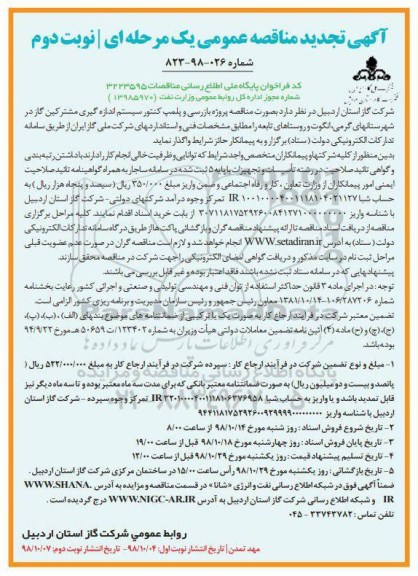 آگهی تجدید مناقصه عمومی یک مرحله ای | نوبت دوم
شماره ۰۲۶-۹۸-۸۲۳
کد فراخوان پایگاه ملی اطلاع رسانی مناقصات ۳۲۲۳۵۹۵
شماره مجوز اداره کل روابط عمومی وزارت نفت (۱۳۹۸۵۹۷۰)
شرکت گاز استان اردبیل در نظر دارد بصورت مناقصه پروژه بازرسی و پلمپ کنتور سیستم اندازه گیری مشترکین گاز در
شهرستانهای گرمی، انگوت و روستاهای تابعه را مطابق مشخصات فنی و استانداردهای شرکت ملی گاز ایران از طریق سامانه
تدارکات الکترونیکی دولت (ستاد) برگزار و به پیمانکار حائز شرایط واگذار نماید
بدین منظور از کلیه شرکتها و پیمانکاران متخصص واجد شرایط که توانایی و ظرفیت خالی انجام کار را دارند با داشتن رتبه بندی
و گواهی تائید صلاحیت تاسیسات و تجهیزات با پایه ۵ ثبت شده در سامانه ساجار به همراه گواهینامه تائید صلاحیت
ایمنی امور پیمانکاران از وزارت تعاون، کار و رفاه اجتماعی و ضمن واریز مبلغ ۳۵۰/۰۰۰ ریال (سیصد و پنجاه هزار ریال) به
حساب شبا تمرکز وجوه درآمد شرکتهای دولتی- شرکت گاز استان اردبیل
با شناسه واریز از بابت خرید اسناد اقدام نمایند. کلیه مراحل برگزاری
مناقصه از دریافت اسناد مناقصه تا ارائه پیشنهاد مناقصه گران و بازگشائی پاکت ها از طریق درگاه سامانه تدارکات الکترونیکی
دولت (ستاد) به آدرس WWW.setadiran.ir انجام خواهد شد و لازم است مناقصه گران در صورت عدم عضویت قبلی
مراحل ثبت نام در سایت مذکور و دریافت گواهی امضای الکترونیکی را جهت شرکت در مناقصه محقق سازند.
پیشنهادهایی که در سامانه ستاد ثبت نشده باشند فاقد اعتبار بوده و غیر قابل بررسی می باشند.
توجه: در اجرای ماده ۳ قانون حداکثر استفاده از توان فنی و مهندسی تولیدی و صنعتی و اجرائی کشور رعایت بخشنامه
شماره ۱۰۶/۲۸۷۲۰۶-۱۳۸۱/۱۰/۱۴ معاون رئیس جمهور و رئیس سازمان مدیریت و برنامه ریزی کشور الزامی است.
تضمین معتبر شرکت در فرآیند ارجاع کار به صورت یک یا ترکیبی از ضمانتنامه های موضوع بندهای (الف)، (ب)، (پ)،
(ج)، (چ) و (ح) ماده (۴) آئین نامه تضمین معاملات دولتی هیأت وزیران به شماره ۱۲۳۴۰۲/ت ۵۰۶۵۹ هـ مورخ ۹۴/۹/۲۲
بوده باشد.
۱- مبلغ و نوع تضمین شرکت در فرآیند ارجاع کار: سپرده شرکت در فرآیند ارجاع کار به مبلغ ۵۲۲/۰۰۰/۰۰۰ ریال (
پانصد و بیست و دو میلیون ریال) به صورت ضمانتنامه معتبر بانکی که برای مدت سه ماه معتبر بوده و تا سه ماه دیگر نیز
قابل تمدید باشد و یا واریز به حساب شبا تمرکز وجوه سپرده – شرکت گاز استان
اردبیل با شناسه واریز
۲- تاریخ شروع فروش اسناد: روز شنبه مورخ ۹۸/۱۰/۱۴ از ساعت ۸/۰۰
۳- تاریخ پایان فروش اسناد: روز چهارشنبه مورخ ۹۸/۱۰/۱۸ قبل از ساعت ۱۹/۰۰
۴- تاریخ تسلیم پیشنهاد قیمت: روز یکشنبه مورخ ۹۸/۱۰/۲۹ قبل از ساعت ۱۲/۰۰
۵- تاریخ بازگشائی: روز یکشنبه مورخ ۹۸/۱۰/۲۹ رأس ساعت ۱۵/۰۰ در ساختمان مرکزی شرکت گاز استان اردبیل.
ضمناً آگهی فوق در شبکه اطلاع رسانی نفت و انرژی «شانا» در قسمت مناقصه و مزایده به آدرس WWW.SHANA.
IR و شبکه اطلاع رسانی شرکت گاز استان اردبیل به آدرس WWW.NIGC-AR.IR درج گردیده است.
تلفن تماس: ۳۳۷۴۳۷۸۲-۰۴۵
روابط عمومی شرکت گاز استان اردبیل
مهد تمدن | تاریخ انتشار نوبت اول: ۹۸/۱۰/۰۴- تاریخ انتشار نوبت دوم: ۹۸/۱۰/۰۷